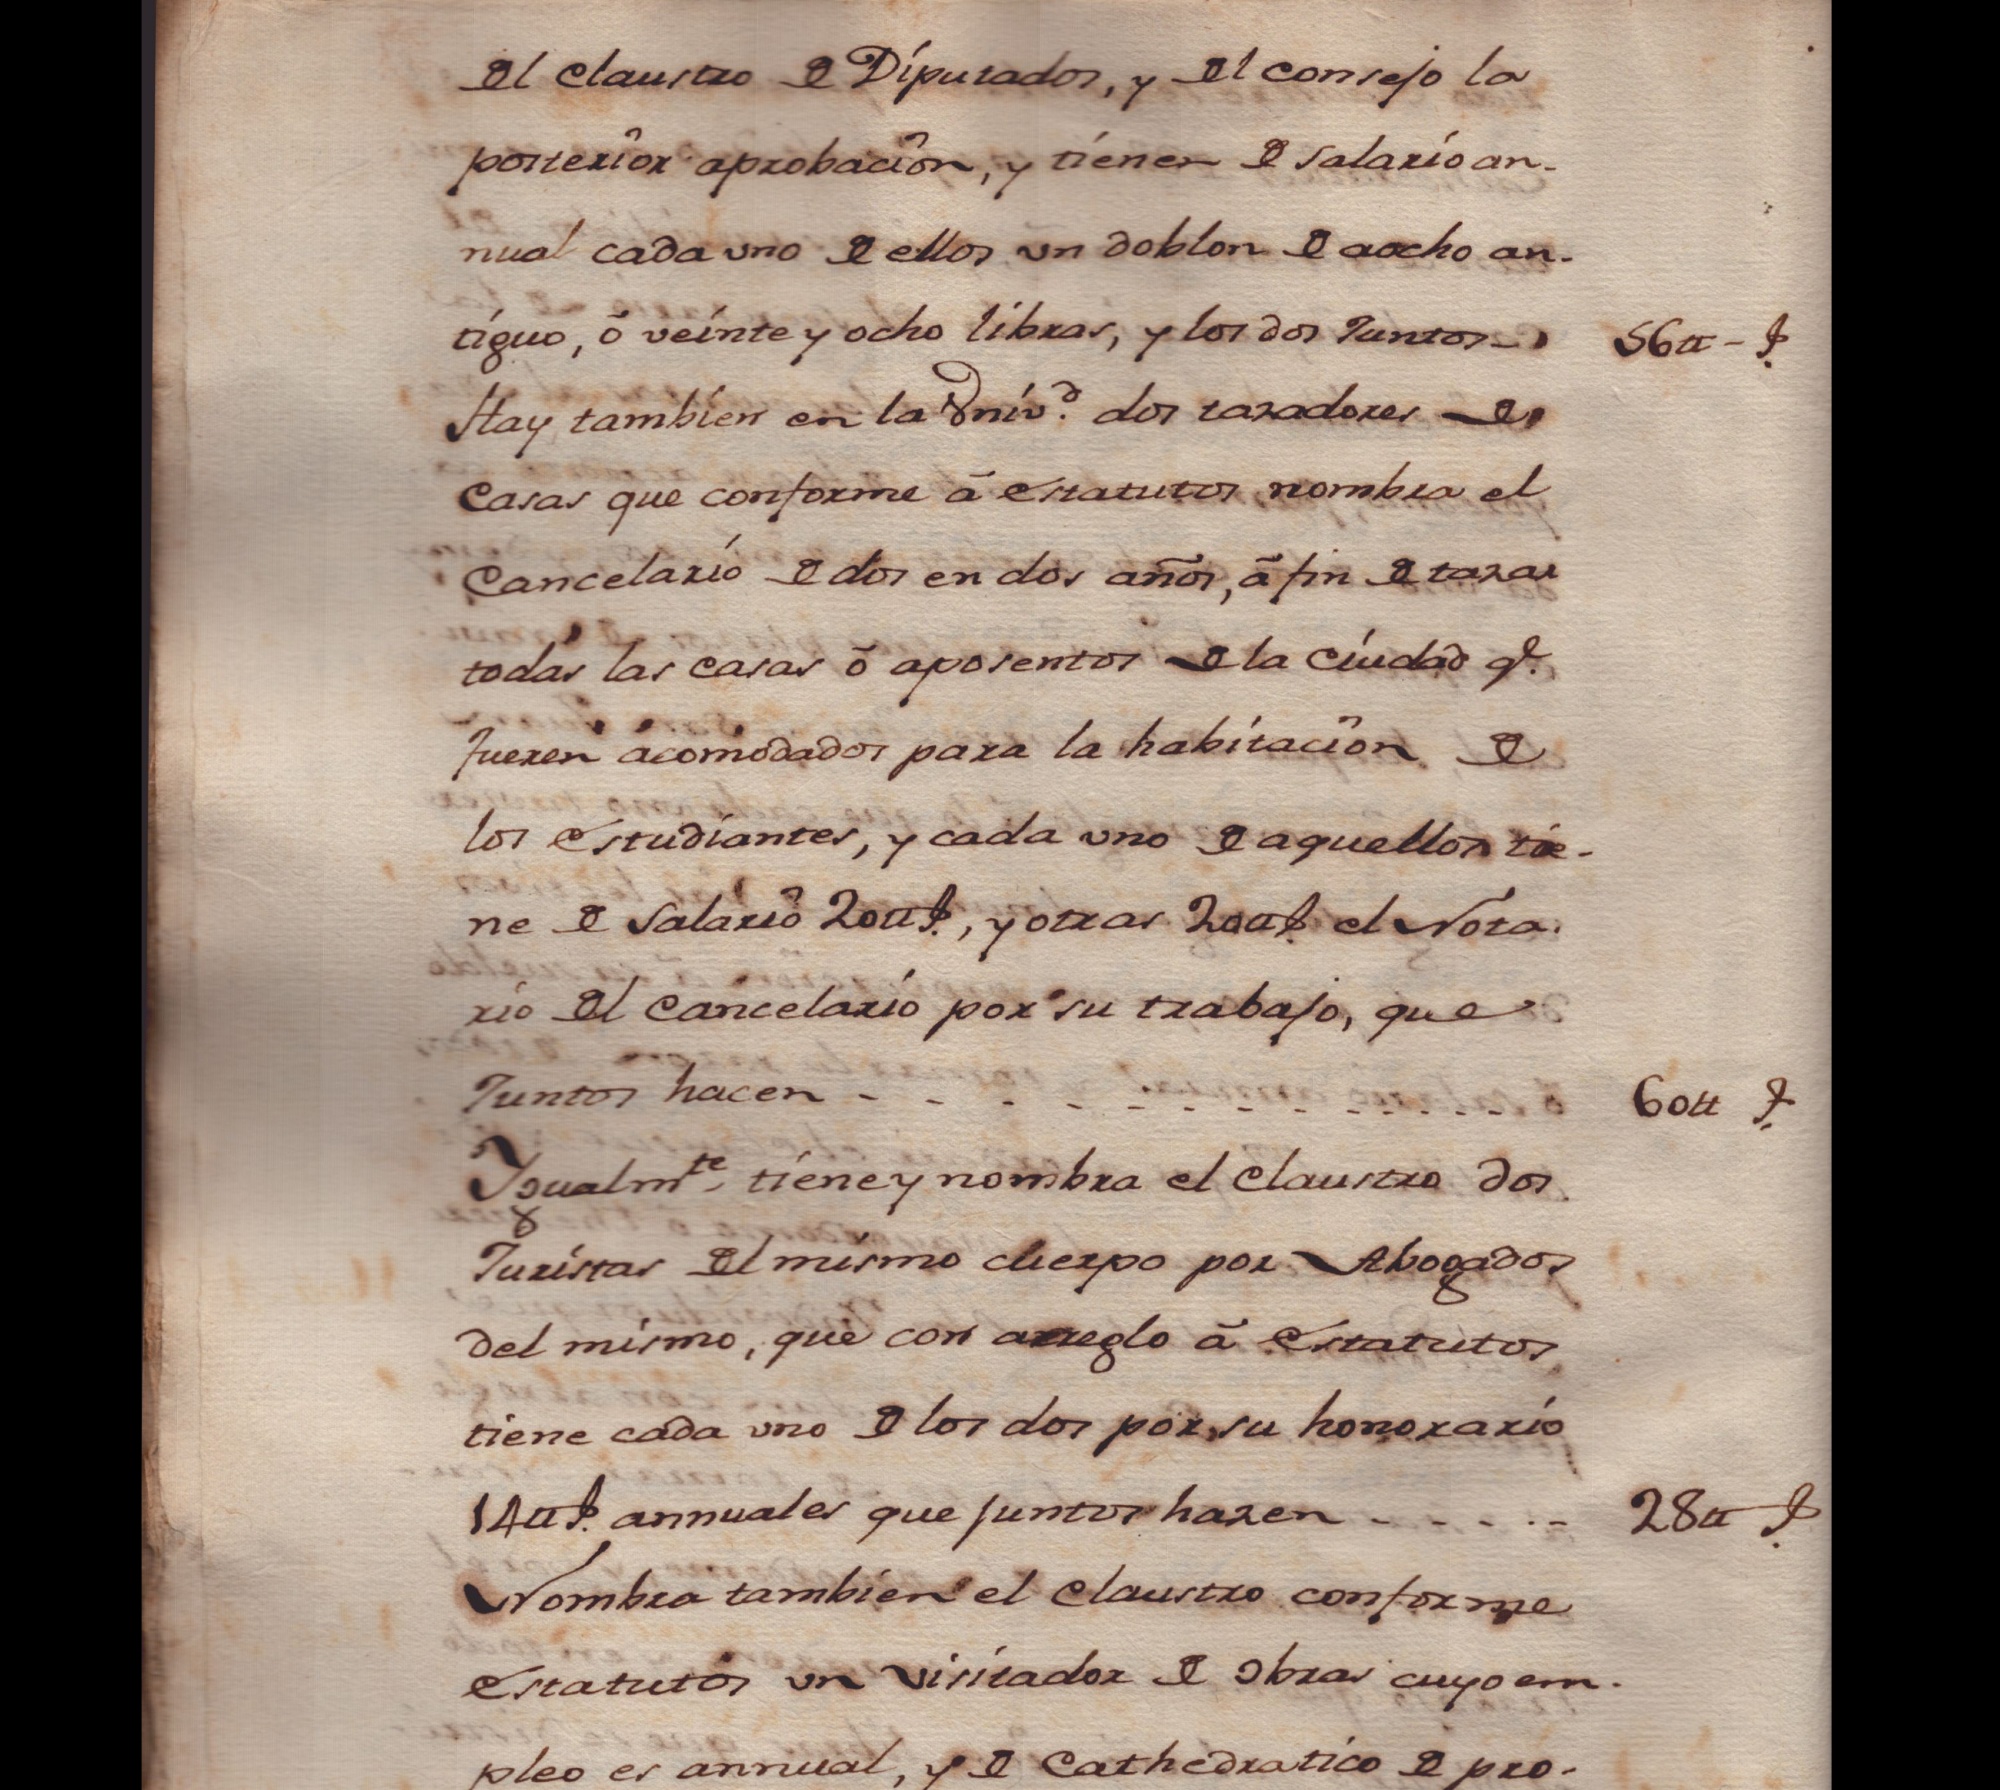 del Claustro de Diputados, y del consejo la
posterior aprobación, y tienen de salario an-
nual cada uno de ellos un doblon de aocho an-
tiguo, ó veinte y ocho libras, y los dos Juntos - 56tt - S.
Hay tambien en la Univ.d dos taxadores de
Casas que conforme á Estatutos nombra el
Cancelario de dos en dos años, á fin de taxar
todas las casas ó aposentos de la Ciudad q.e
fueren acomodados para la habitación de
los Estudiantes, y cada uno de aquellos tie-
ne de salario 20tt S., y otras 20tt S. el Nota-
rio del Cancelario por su trabajo, que
Juntos hacen - - - - - - - - - - 60tt S.
Igualm.te tiene y nombra el Claustro dos
Juristas del mismo cuerpo por Abogados
del mismo, que con arreglo á Estatutos
tiene cada uno de los dos por su honorario
14tt S. annuales que juntos hazen - - - - - 28tt S.
Nombra tambien el Claustro conforme
Estatutos un Visitador de obras cuyo em-
pleo es annual, y de Cathedratico de pro-